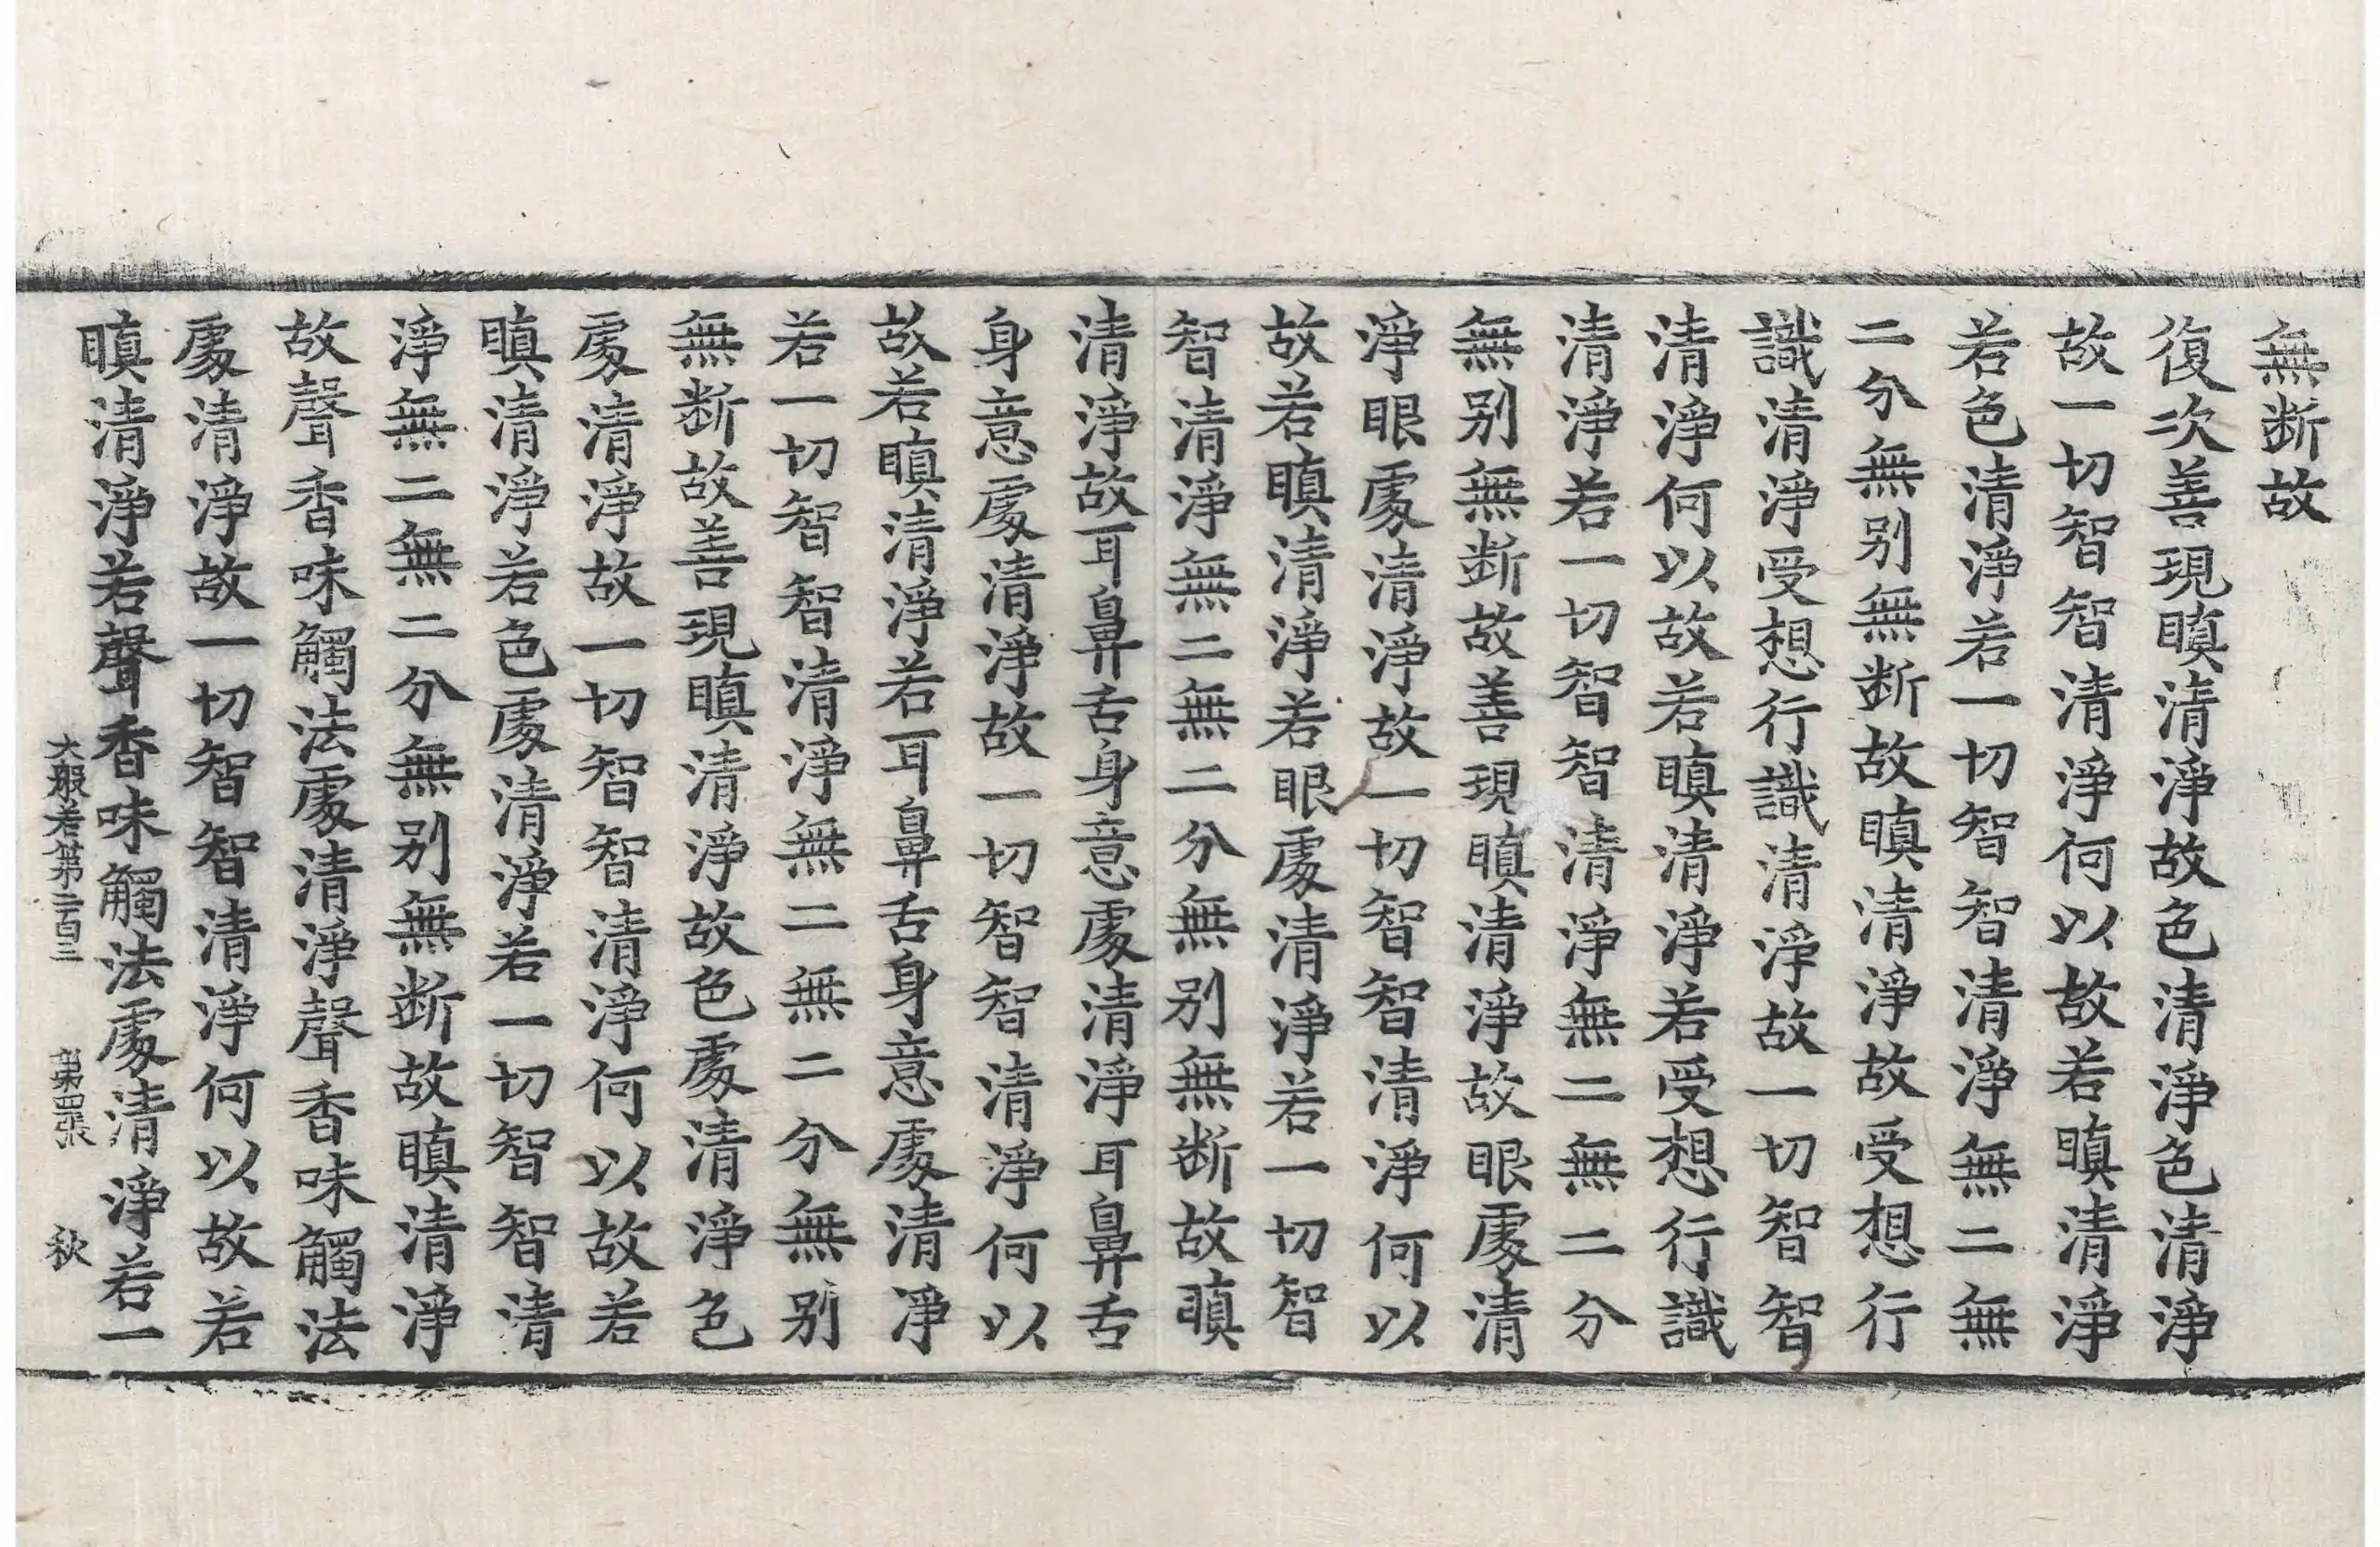 無断故
復次善現瞋清淨故色清淨色清淨
故一切智智清淨何以故若瞋清淨
若色清淨若一切智智清淨無二無
二分無别無断故瞋清淨故受想行
識清淨受想行識清淨故一切智智
清淨何以故若瞋清淨若受想行識
清淨若一切智智清淨無二無二分
無别無断故善現瞋清淨故眼處清
淨眼處清淨故一切智智清淨何以
故若瞋清淨若眼處清淨若一切智
智清淨無二無二分無别無断故瞋
清淨故耳鼻舌身意處清淨耳鼻舌
身意處清淨故一切智智清淨何以
故若瞋清淨若耳鼻舌身意處清淨
若一切智智清淨無二無二分無别
無断故善現瞋清淨故色處清淨色
處清淨故一切智智清淨何以故若
瞋清淨若色處清淨若一切智智清
淨無二無二分無别無断故瞋清淨
故聲香味觸法處清淨聲香味觸法
處清淨故一切智智清淨何以故若
瞋清淨若聲香味觸法處清淨若一
大般若第二百三 第四張 秋